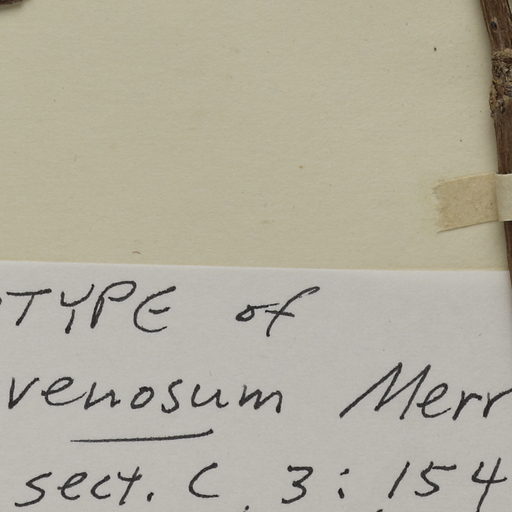 TYPE of
venosum Merr
sect. C, 3: 154